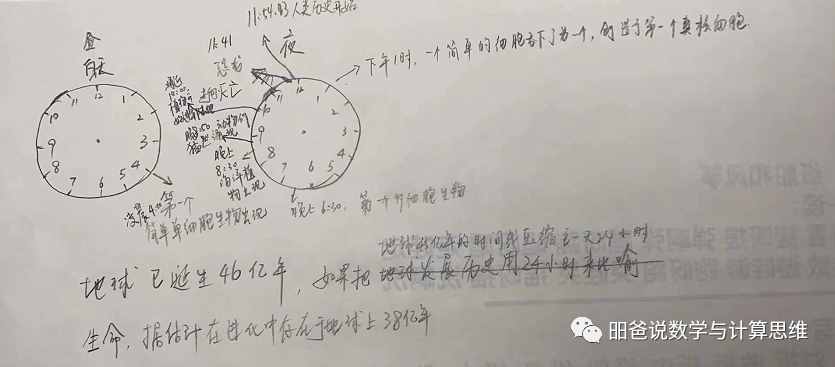 11:54:43 人类历史开始
11:41
恐龙
灭亡
夜
白天
12
1
2
3
4
5
6
7
8
9
10
11
12
1
2
3
4
5
6
7
8
9
10
11
下午1时,一个简单的细胞吞下了另一个,创造了第一个真核细胞
晚上
8:30
海洋植
物出现
晚上6:30,第一个多细胞生物
凌晨4:00 第一个
简单单细胞生物出现
地球46亿年的时间我压缩至一天24小时
地球已诞生46亿年,如果把地球发展历史用24小时来比喻
生命,据估计在进化中存在于地球上38亿年
昍爸说数学与计算思维